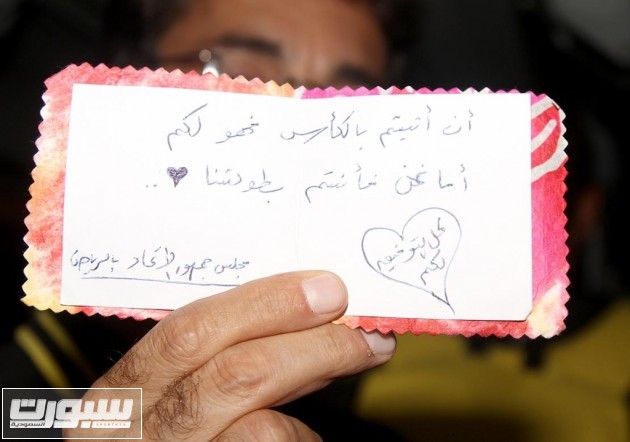 أن أتيتم بالكأس فهو لكم
أما نحن فأنتم بطولتنا ♥..
كل التوفيق
لكم
مجلس جمهور الإتحاد بالرياض
سبورت
السعودية